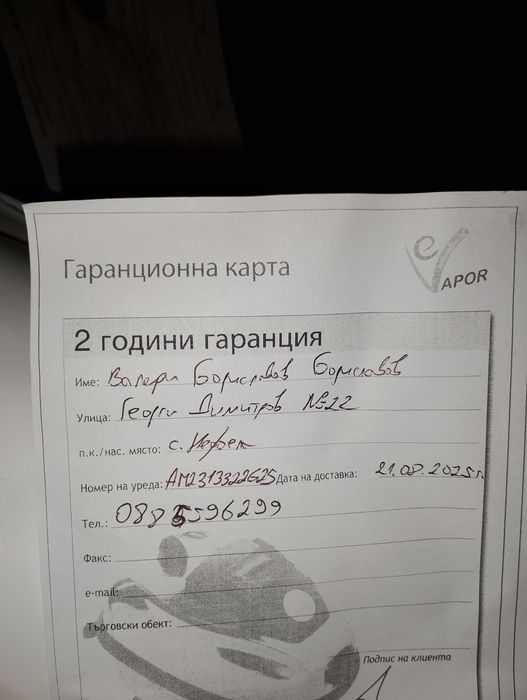 Гаранционна карта
eVAPOR
2 години гаранция
Име: Валери Бориславов Бориславов
Улица: Георги Димитров №22
п.к./нас. място: с.
Номер на уреда: AM2313322625 Дата на доставка: 21.08.2025г
Тел.: 0885596299
Факс:
e-mail:
Търговски обект:
Подпис на клиента